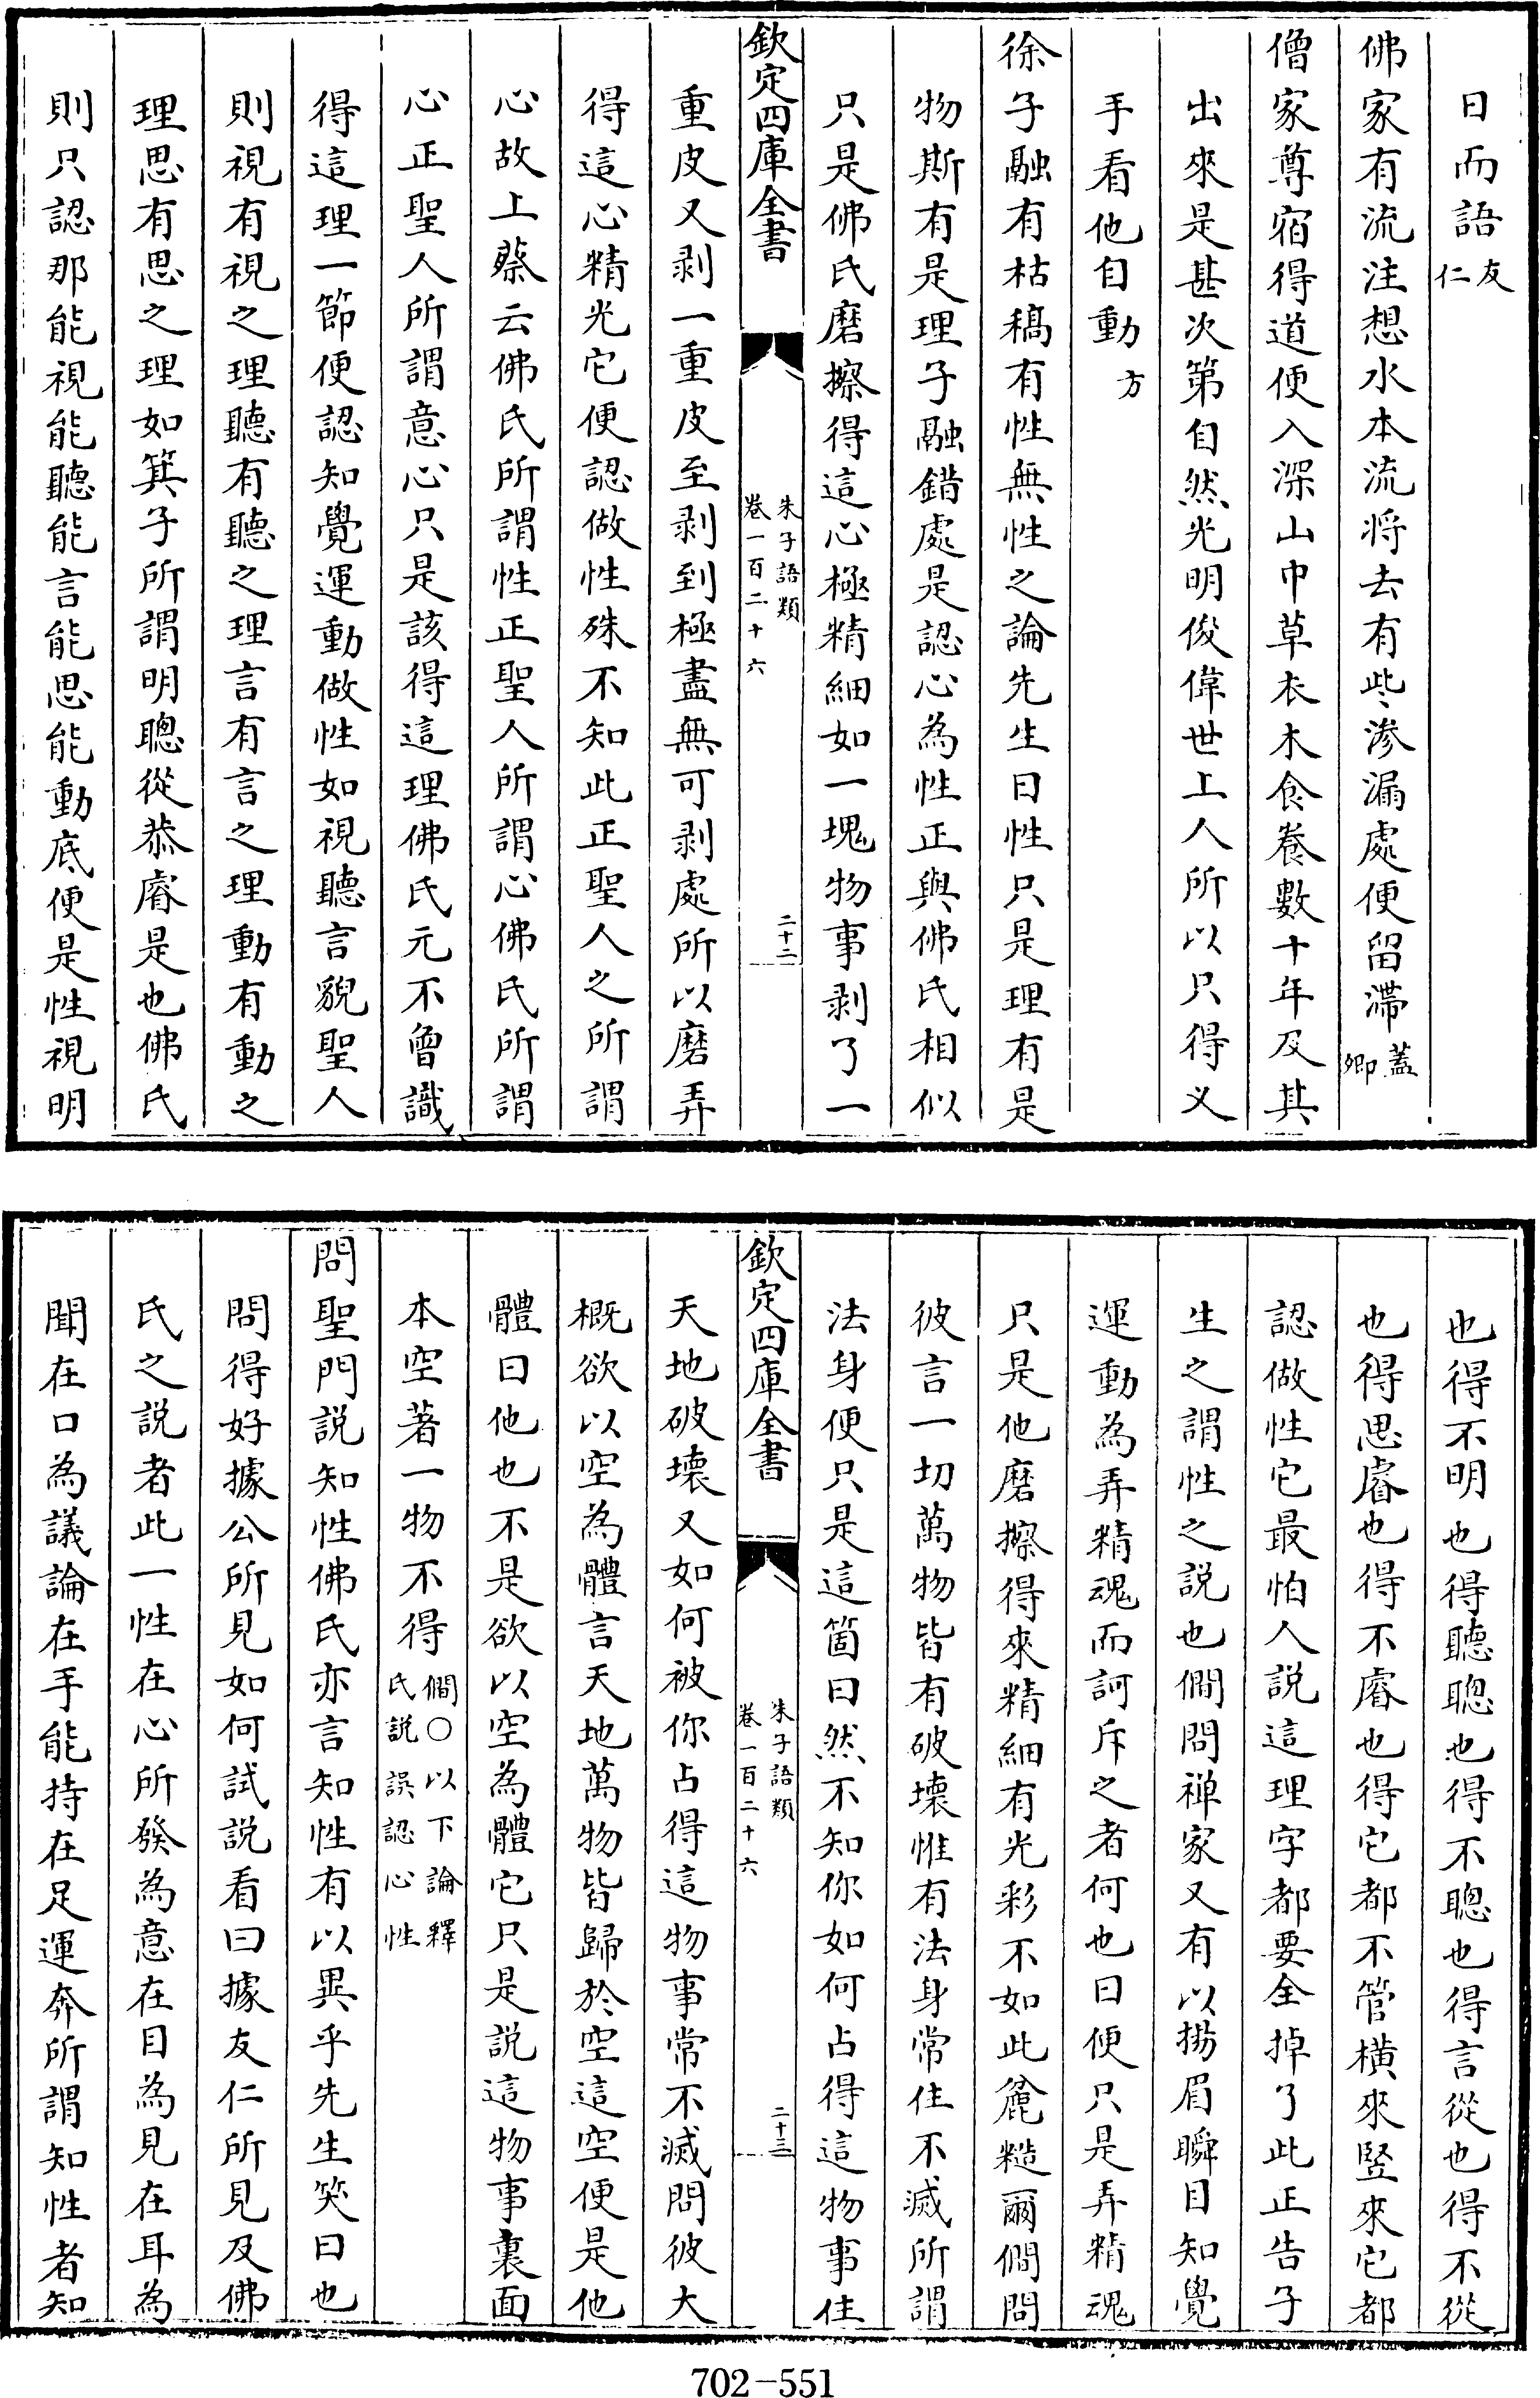 日而語友仁
佛家有流注想水本流将去有些渗漏處便留滯蓋卿
僧家尊宿得道便入深山中草衣木食養數十年及其
出來是甚次第自然光明俊偉世上人所以只得义
手看他自動方
徐子融有枯稿有性無性之論先生曰性只是理有是
物斯有是理子融錯處是認心為性正與佛氏相似
只是佛氏磨擦得這心極精細如一塊物事剥了一
欽定四庫全書
朱子語類
卷一百二十六
二十二
重皮又剥一重皮至剥到極盡無可剥處所以磨弄
得這心精光它便認做性殊不知此正聖人之所謂
心故上蔡云佛氏所謂性正聖人所謂心佛氏所謂
心正聖人所謂意心只是該得這理佛氏元不曾識
得這理一節便認知覺運動做性如視聽言貌聖人
則視有視之理聽有聽之理言有言之理動有動之
理思有思之理如箕子所謂明聰從恭睿是也佛氏
則只認那能視能聽能言能思能動底便是性視明
也得不明也得聽聰也得不聰也得言從也得不從
也得思睿也得不睿也得它都不管横來竪來它都
認做性它最怕人説這理字都要全掉了此正告子
生之謂性之説也僩問禅家又有以揚眉瞬目知覺
運動為弄精魂而訶斥之者何也曰便只是弄精魂
只是他磨擦得來精細有光彩不如此麄糙爾僩問
彼言一切萬物皆有破壊惟有法身常住不滅所謂
法身便只是這箇曰然不知你如何占得這物事住
欽定四庫全書
朱子語類
卷一百二十六
二十三
天地破壊又如何被你占得這物事常不滅問彼大
概欲以空為體言天地萬物皆歸於空這空便是他
體曰他也不是欲以空為體它只是説這物事裏面
本空著一物不得僩○以下論釋氏説誤認心性
問聖門説知性佛氏亦言知性有以異乎先生笑曰也
問得好據公所見如何試説看曰據友仁所見及佛
氏之説者此一性在心所發為意在目為見在耳為
聞在口為議論在手能持在足運奔所謂知性者知
702-551